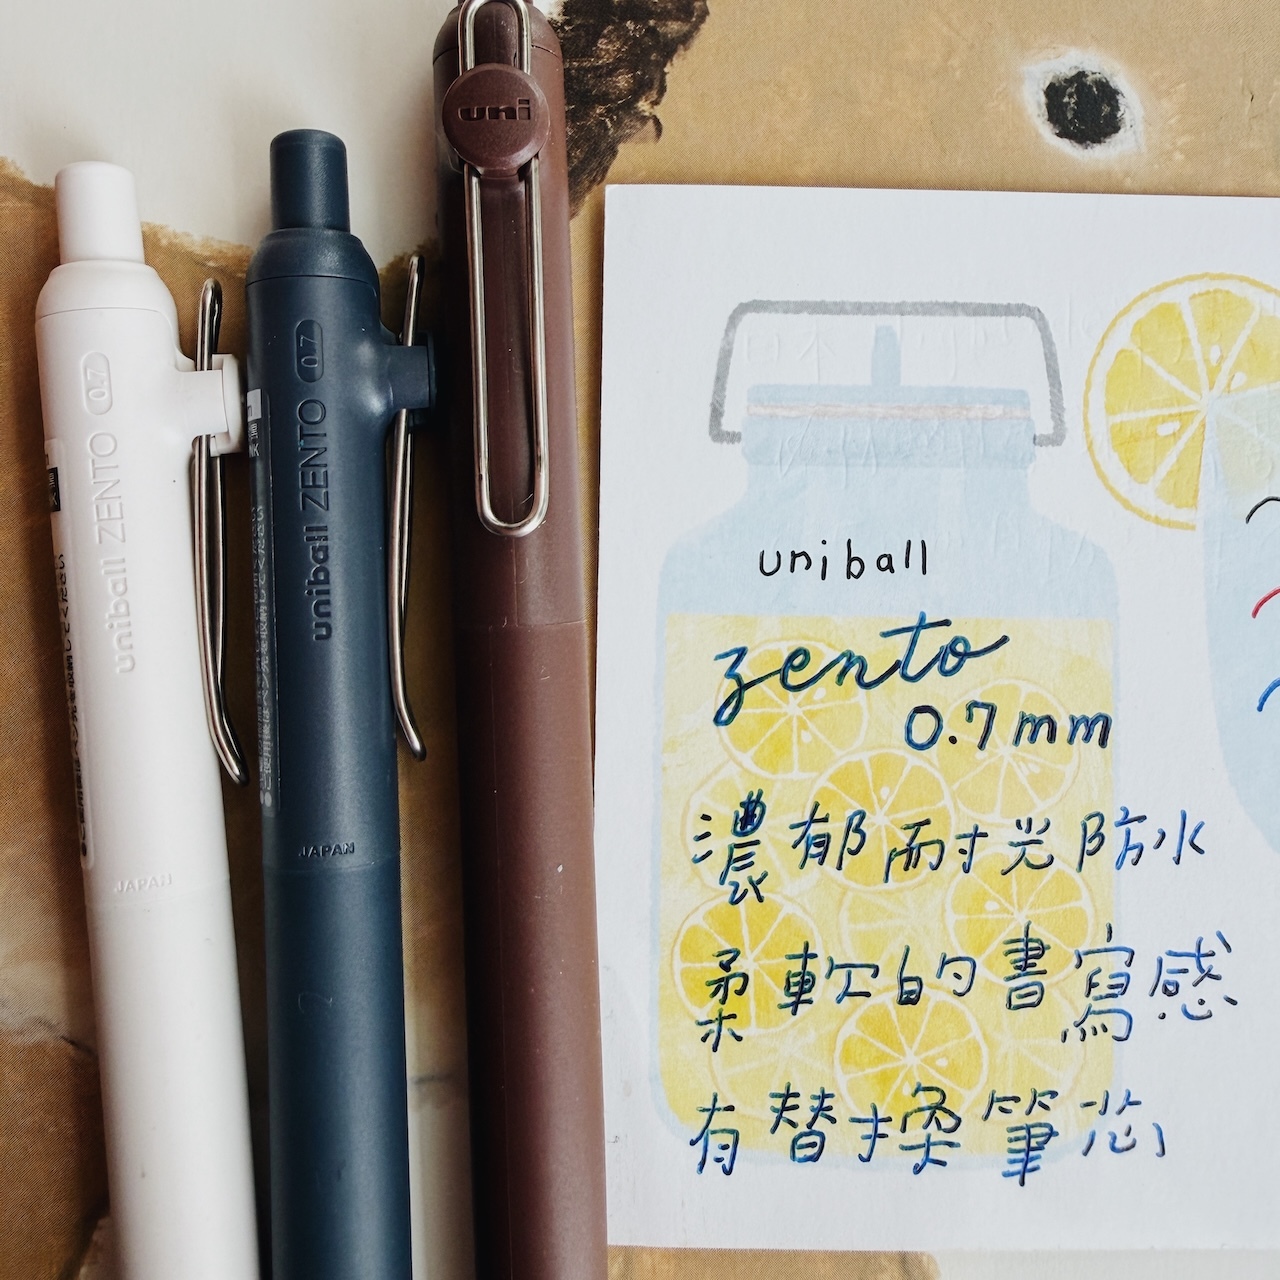 uniball ZENTO 0.7
JAPAN
uniball ZENTO 0.7
JAPAN
uni
uniball
zento
0.7mm
濃郁耐光防水
柔軟的書寫感
有替換筆芯